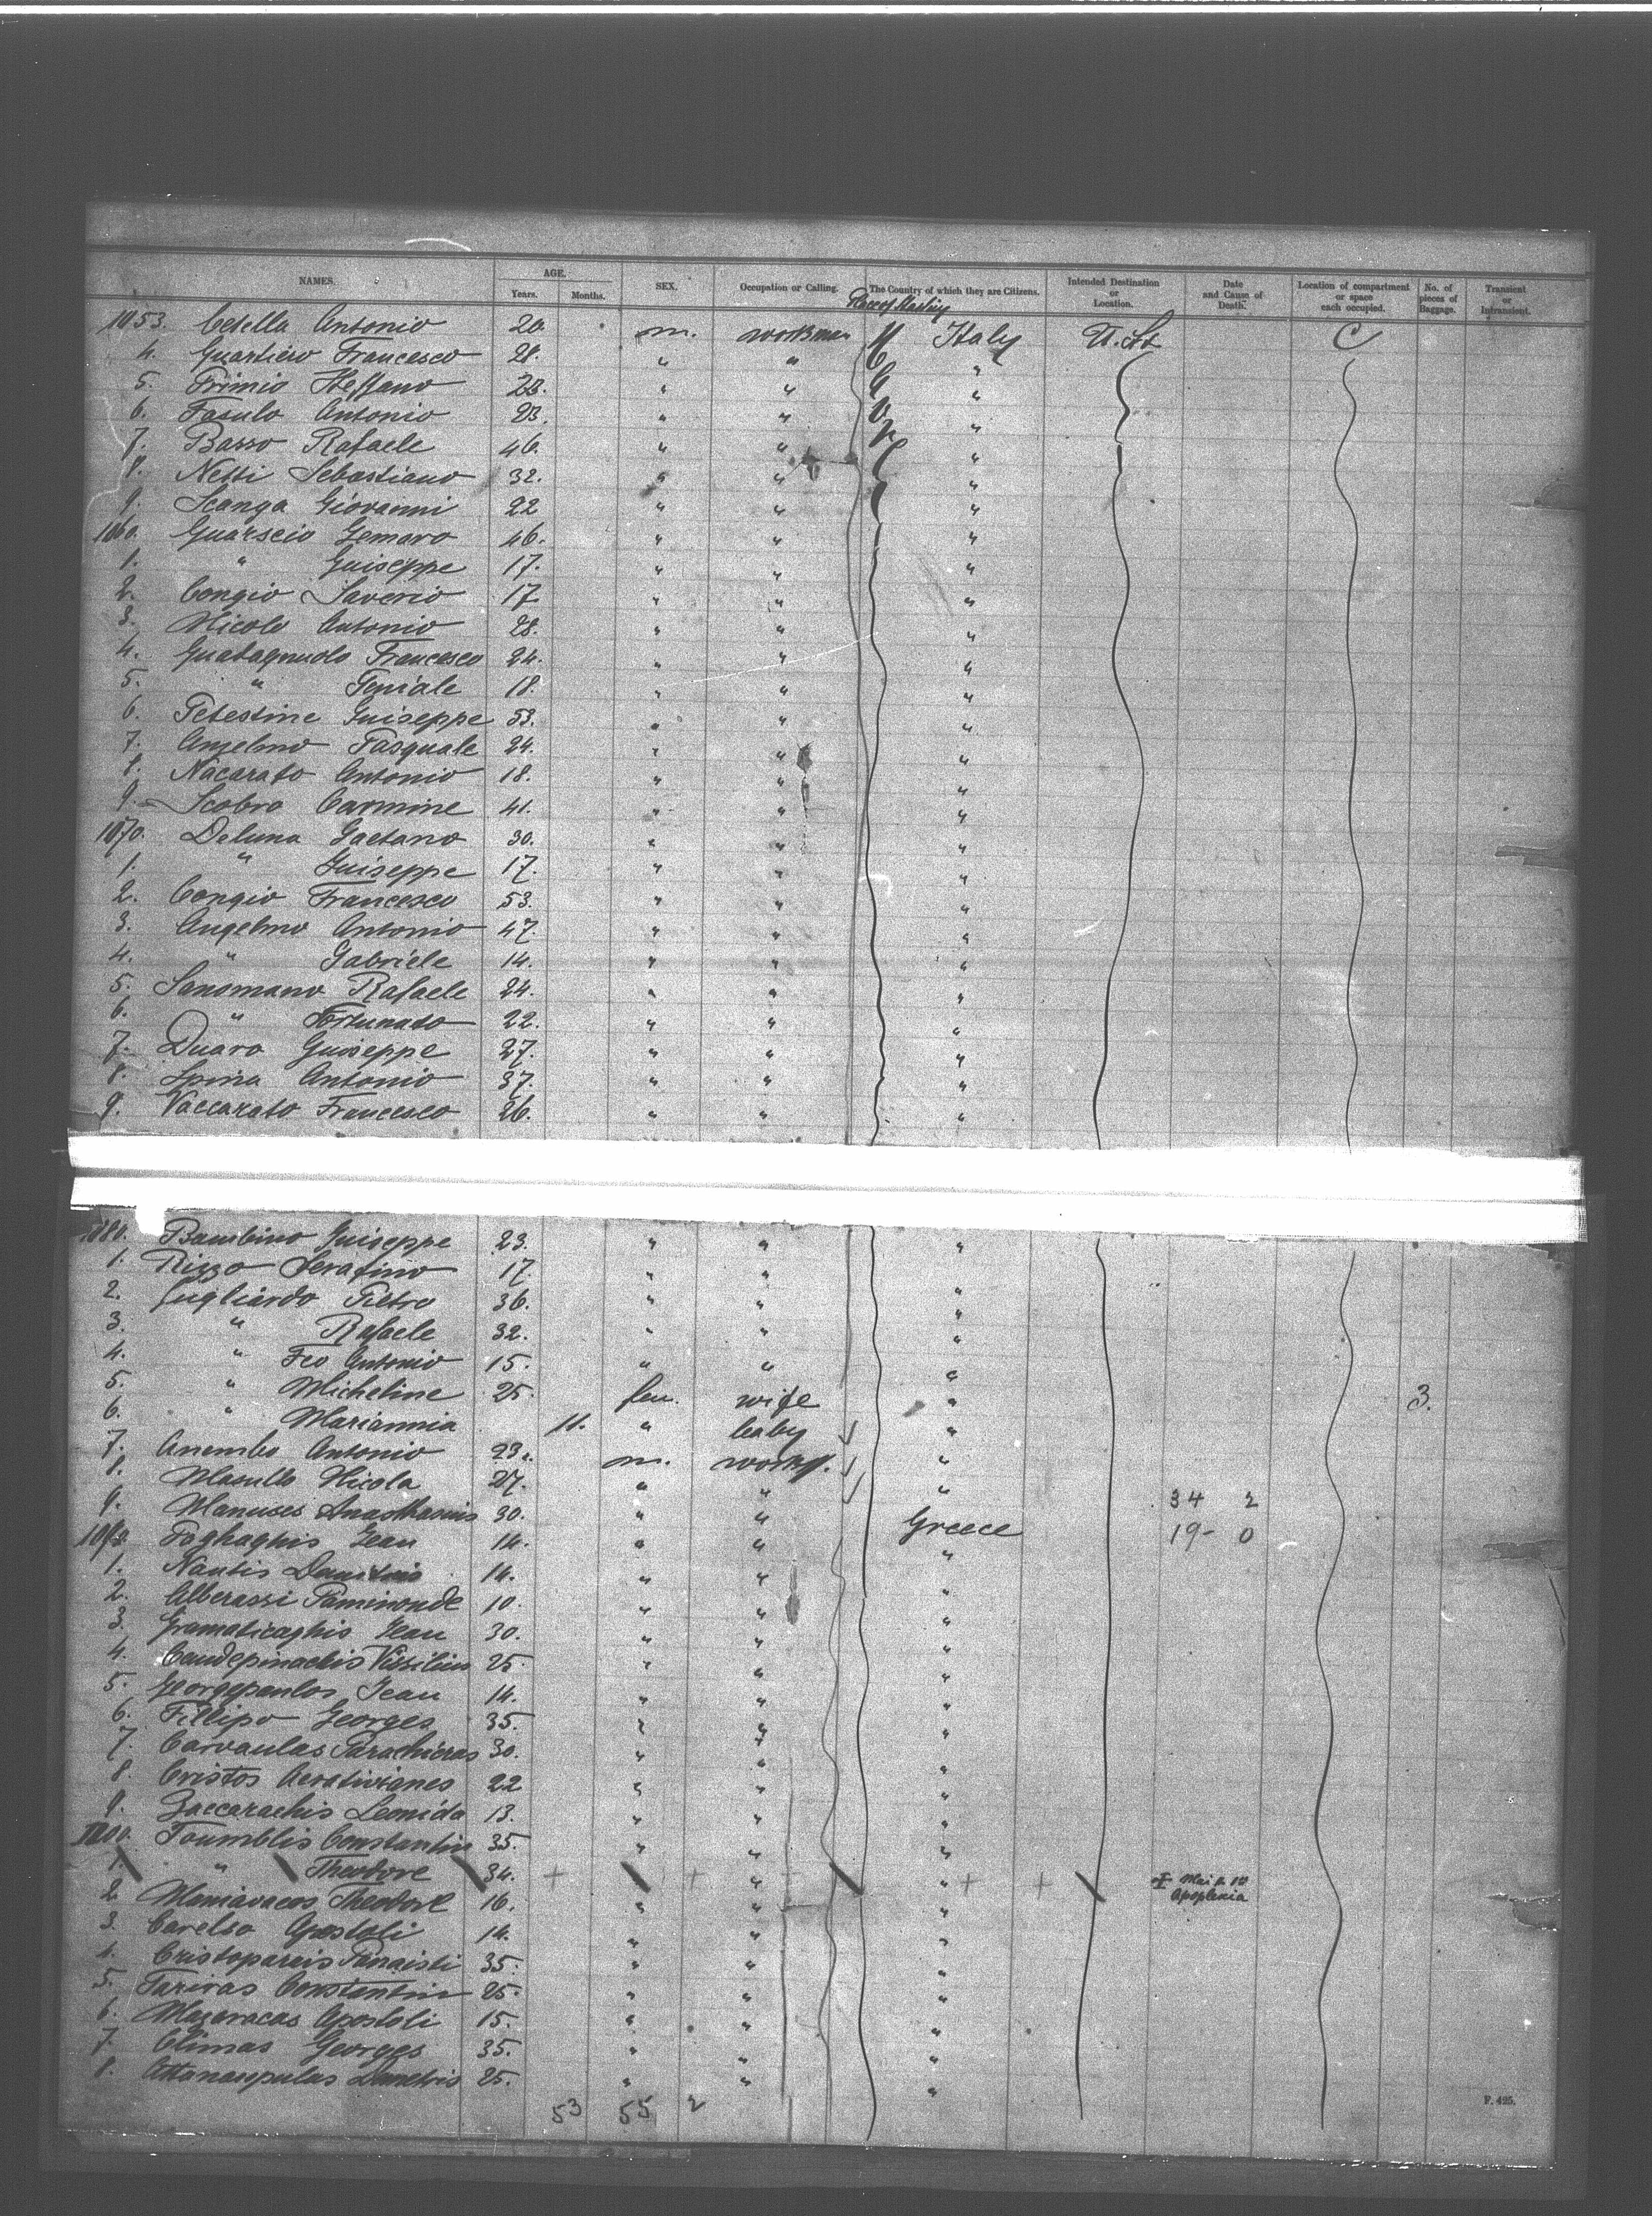 NAMES. AGE. Years. Months. SEX. Occupation or Calling. The Country of which they are Citizens. Intended Destination or Location. Date and Cause of Death. Location of compartment or space each occupied. No. of pieces of Baggage. Transient or Intransient.
Place of Starting
1053. Cetella Antonio 20. m. workman Italy U. St. C
4. Guartiero Francesco 28. " " "
5. Primio Steffano 28. " " "
6. Fasulo Antonio 23. " " "
7. Basso Rafaele 46. " " "
8. Netti Sebastiano 32. " " "
9. Scanga Giovanni 22 " " "
1060. Guarscio Gennaro 46. " " "
1. " Guiseppe 17. " " "
2. Congio Saverio 17 " " "
3. Nicolo Antonio 28. " " "
4. Guadagnuolo Francesco 24. " " "
5. " Geniale 18. " " "
6. Petestine Guiseppe 53. " " "
7. Anselmo Pasquale 24. " " "
8. Nacarato Antonio 18. " " "
9. Scobro Carmine 41. " " "
1070. Deluna Gaetano 30. " " "
1. " Guiseppe 17. " " "
2. Congio Francesco 53. " " "
3. Angelmo Antonio 47. " " "
4. " Gabriele 14. " " "
5. Sanomano Rafaele 24. " " "
6. " Fortunato 22. " " "
7. Duaro Guiseppe 27. " " "
8. Spina Antonio 37. " " "
9. Vaccarato Francesco 26. " " "
1080. Bambino Guiseppe 23. " " "
1. Rizzo Serafino 17. " " "
2. Gugliardo Pietro 36. " " "
3. " Rafaele 32. " " "
4. " Feo Antonio 15. " " "
5. " Micheline 25. fem. wife " 3.
6. " Mariannia 11. " baby "
7. Anembo Antonio 23. m. workm. "
8. Masullo Nicola 27. " " " 34 2
9. Manuses Anasthasius 30. " " Greece 19- 0
1090. Foghaghis Jean 14. " " "
1. Nautis 14. " " "
2. Alberassi Paminonde 10. " " "
3. Gramaticaghis Jean 30. " " "
4. Candepinachis Vissilius 25. " " "
5. Georgepoulos Jean 14. " " "
6. Fillipo Georges 35. " " "
7. Carvaulas 30. " " "
8. Cristos 22 " " "
9. Zaccarachis Leonida 13. " " "
1100. Toumblis Constantin 35. " " "
1. " Theodore 34. + + " + + " + +
Apoplexia
2. Maniavacos Theodore 16. " " "
3. Carelso Apostoli 14. " " "
4. Cristopareis Panaisti 35. " " "
5. Tarivas Constantin 25. " " "
6. Mazaracas Apostoli 15. " " "
7. Climas Georges 35. " " "
8. Attanasepulas Demetris 25. " " "
53 55 2
F. 425.